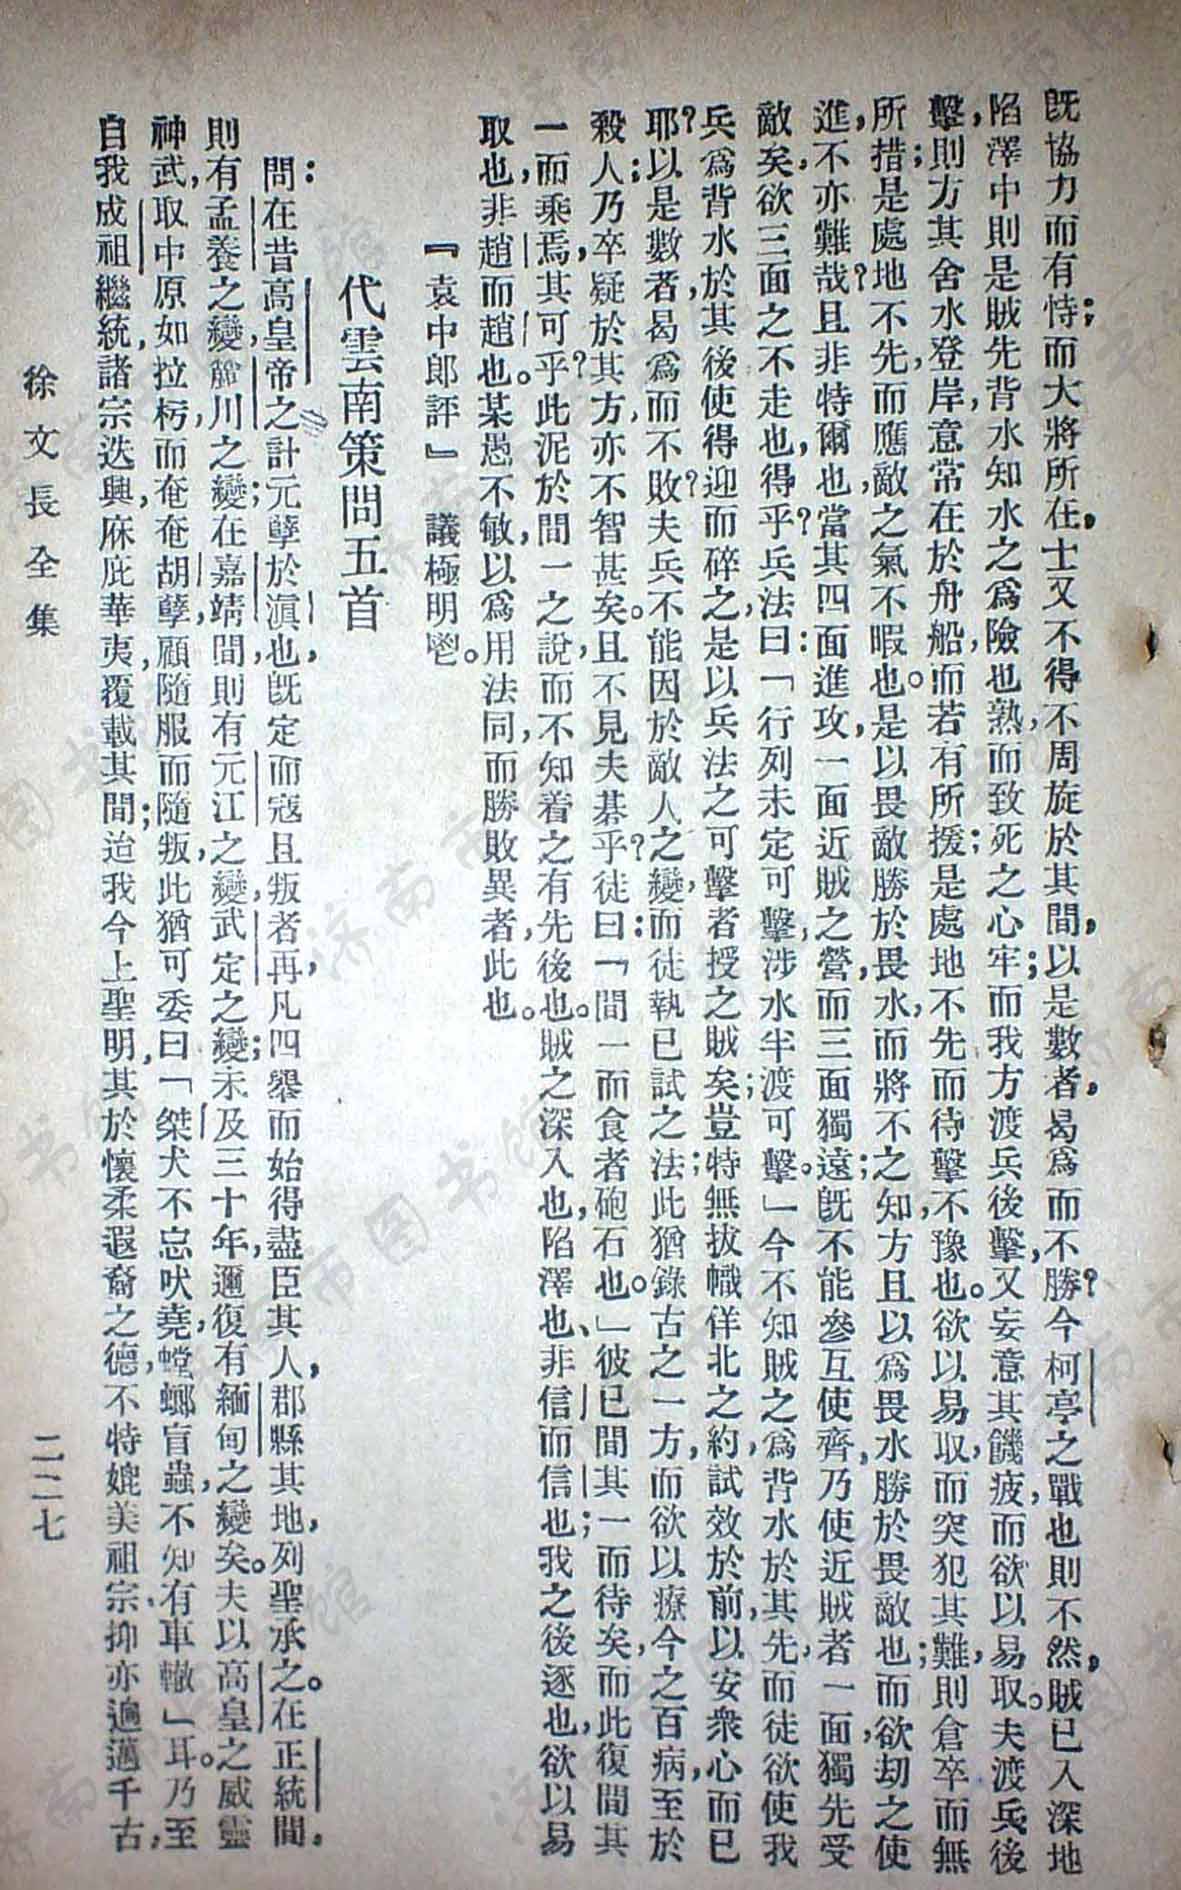 既協力而有恃；而大將所在，士又不得不周旋於其間，以是數者，曷爲而不勝？今柯亭之戰也則不然，賊已入深地
陷澤中則是賊先背水，知水之爲險也熟，而致死之心牢；而我方渡兵後擊，又妄意其饑疲，而欲以易取。夫渡兵後
擊，則方其舍水登岸，意常在於舟船，而若有所援；是處地不先而待擊不豫也。欲以易取而突犯其難，則倉卒而無
所措；是處地不先，而應敵之氣不暇也。是以畏敵勝於畏水，而將不之知，方且以爲畏水勝於畏敵也；而欲劫之使
進，不亦難哉？且非特爾也，當其四面進攻，一面近賊之營，而三面獨遠；既不能參互使齊，乃使近賊者一面獨先受
敵矣，欲三面之不走也，得乎？兵法曰：「行列未定可擊，涉水半渡可擊。」今不知賊之爲背水於其先，而徒欲使我
兵爲背水於其後，使得迎而碎之，是以兵法之可擊者授之賊矣；豈特無拔幟佯北之約，試效於前，以安衆心而已
耶？以是數者，曷爲而不敗？夫兵不能因於敵人之變，而徒執已試之法；此猶錄古之一方，而欲以療今之百病，至於
殺人；乃卒疑於其方，亦不智甚矣。且不見夫碁乎？徒曰：「間一而食者砲石也。」彼已間其一而待矣，而此復間其
一而乘焉，其可乎？此泥於間一之說，而不知着之有先後也。賊之深入也，陷澤也、非信而信也；我之後逐也，欲以易
取也，非趙而趙也。某愚不敏，以爲用法同，而勝敗異者，此也。
『袁中郎評』　議極明鬯。
代雲南策問五首
問：在昔高皇帝之計元孽於滇也，旣定而寇且叛者再，凡四舉而始得盡臣其人，郡縣其地，列聖承之。在正統間，
則有孟養之變，麓川之變；在嘉靖間，則有元江之變，武定之變；未及三十年，邇復有緬甸之變矣。夫以高皇之威靈
神武，取中原如拉朽，而奄奄胡孽，顧隨服而隨叛，此猶可委曰「桀犬不忘吠堯，螳螂盲蟲，不知有車轍」耳。乃至
自我成祖繼統，諸宗迭興，庥庇華夷，覆載其間；迨我今上聖明，其於懷柔遐裔之德，不特媲美祖宗，抑亦逈邁千古，
徐文長全集
二二七